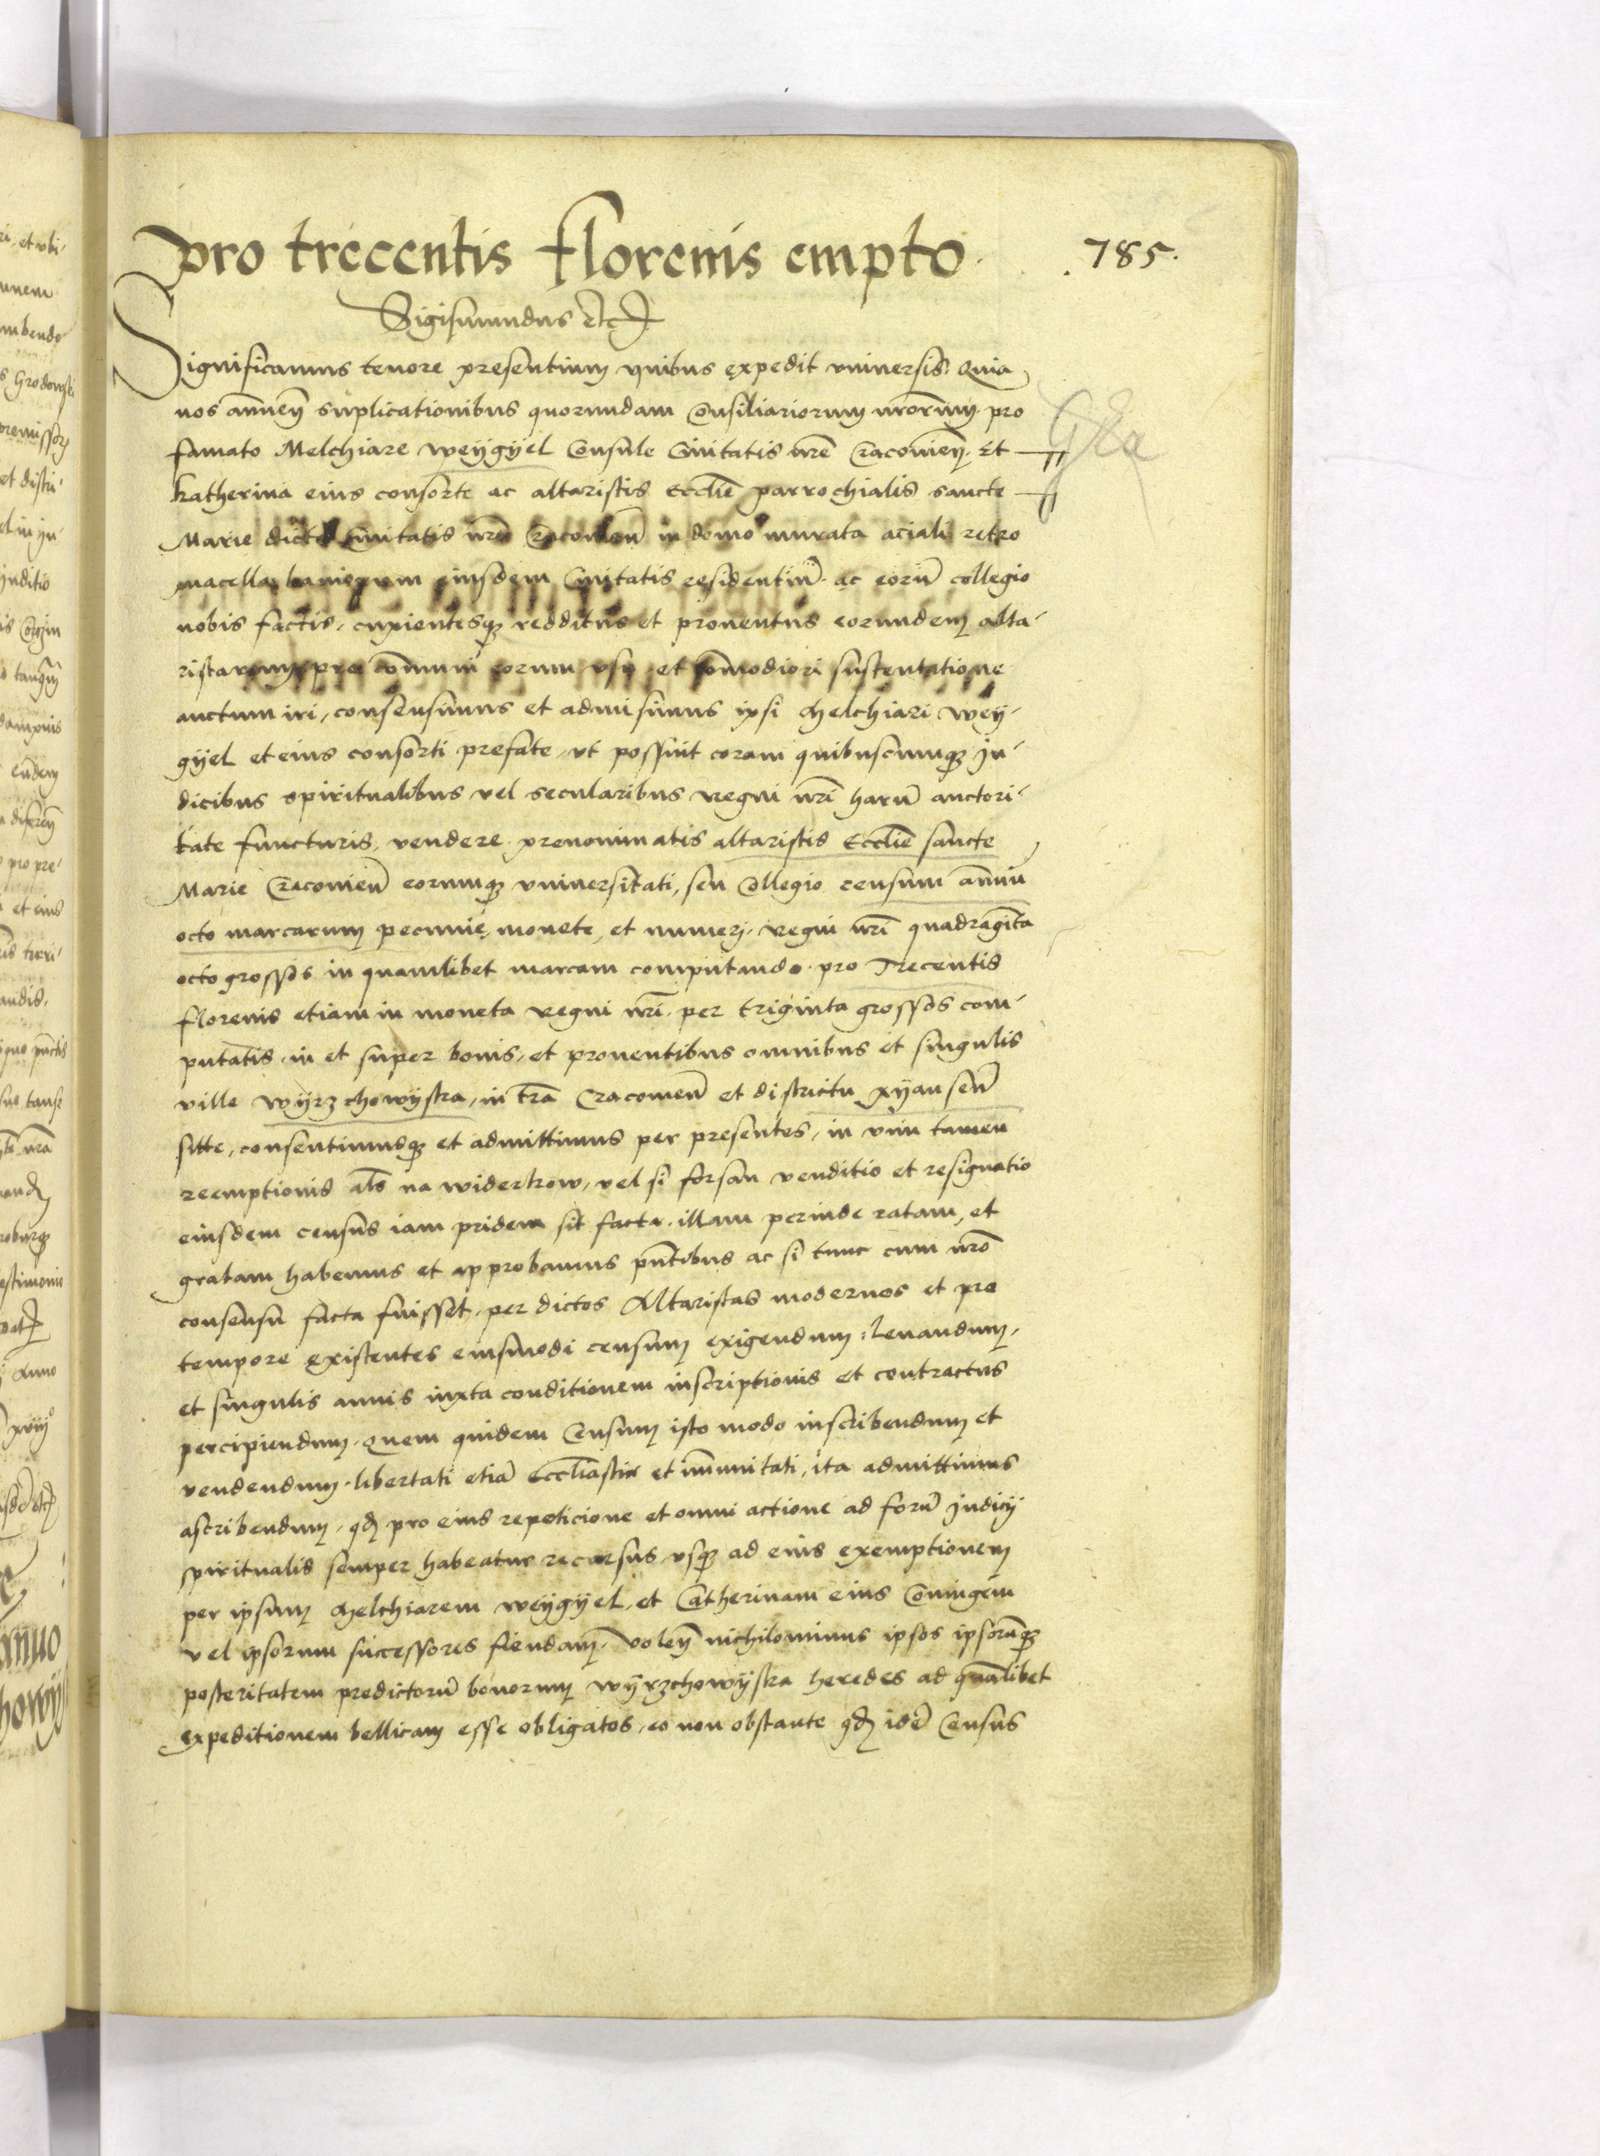 pro trecentis florenis empto. .785.
Sigismundus etc.
Significamus tenore presentium quibus expedit vniuersis. Quia
nos annuen̄ suplicationibus quorundam Consiliariorum nr̄orum. pro
famato Melchiare weygyel Consule Ciuitatis nr̄e Cracouien̄. Et
katherina eius consorte ac altaristis Ecclīe parrochialis sancte
Marie dicte Ciuitatis nr̄e Cracouien̄ in domo murata aciali retro
macella eiusdem Ciuitatis residentiū. ac eorū collegio
nobis factis, cupientesqʒ redditus et prouentus eorundem alta-
ristarum pro cōmuni eorum vsu et cōmodiori sustentatione
auctum iri, consensimus et admisimus ipsi Melchiari wey-
gyel et eius consorti prefate, vt possint coram quibuscumqʒ Ju-
dicibus spiritualibus vel secularibus regni nr̄i harū auctori-
tate functuris, vendere prenominatis altaristis Ecclīe sancte
Marie Cracouien̄ eorumqʒ vniuersitati, seu Collegio censum annuū
octo marcarum pecunie, monete, et numeri, regni nr̄i quadraginta
octo grossos in quamlibet marcam computando. pro Trecentis
florenis etiam in moneta regni nr̄i. per triginta grossos com-
putatis. in et super bonis, et prouentibus omnibus et singulis
ville wyrzchowyska, in trā Cracouien̄ et districtu xyansen̄
sitte, consentimusqʒ et admittimus per presentes, in vim tamen
reemptionis al̄s na widerkow, vel si forsan venditio et resignatio
eiusdem census iam pridem sit facta. illam perinde ratam, et
gratam habemus et approbamus pn̄tibus ac si tunc cum nr̄o
consensu facta fuisset. per dictos Altaristas modernos et pro
tempore existentes eiusmodi censum exigendum: leuandum,
et singulis annis iuxta conditionem inscriptionis et contractus
percipiendum. Quem quidem Censum isto modo inscribendum et
vendendum. libertati etiā Eccliāstice et im̄unitati, ita admittimus
ascribendum, qđ pro eius repeticione et omni actione ad forū Judicij
spiritualis semper habeatur recursus vsqʒ ad eius exemptionem
per ipsum Melchiarem weygyel, et Catherinam eius Coniugem
vel ipsorum successores fiendam. volen̄ nichilominus ipsos ipsorūqʒ
posteritatem predictorū bonorum wyrzchowyska heredes ad quālibet
expeditionem bellicam esse obligatos, eo non obstante qđ idē Census